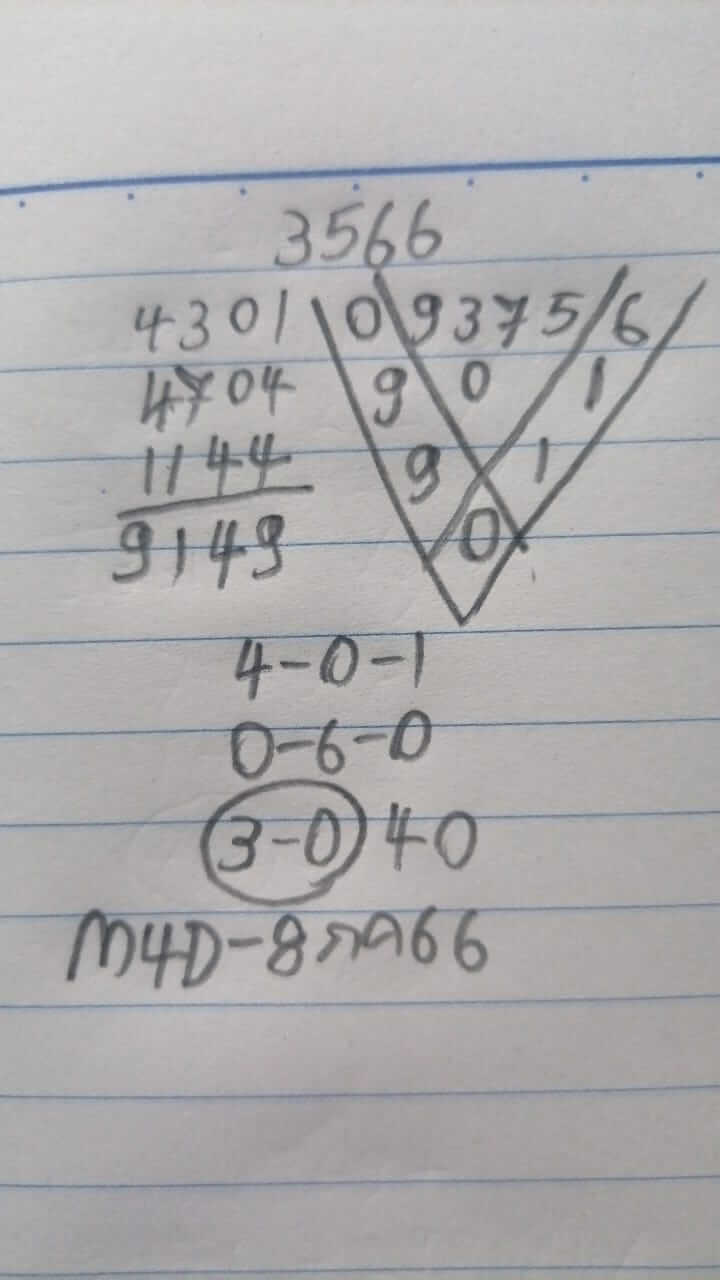 3566
4301 0 9375 6
4704 9 0 1
1144 9 1
9149 0
4-0-1
0-6-0
3-0 40
M4D-8 กค66